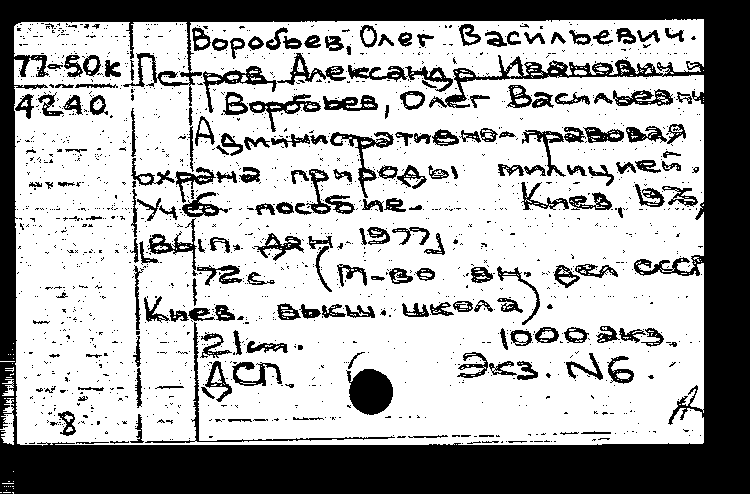 Воробьев, Олег Васильевич.
77-50к Петров, Александр Иванович и
4240. Воробьев, Олег Васильевич
Административно-правовая
охрана природы милицией.
Учеб. пособие. Киев, 1976,
[вып. дан. 1977].
72с. (М-во вн. дел СССР
Киев. высш. школа).
21см. 1000 экз.
ДСП. Экз. N6.
8